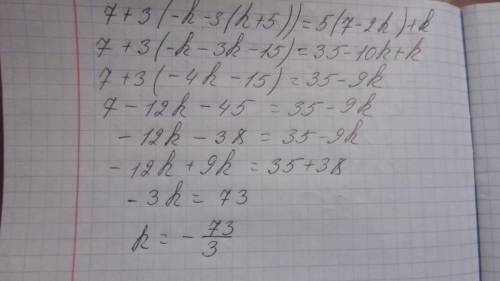 7+3(-k-3(k+5))=5(7-2k)+k
7+3(-k-3k-15)=35-10k+k
7+3(-4k-15)=35-9k
7-12k-45=35-9k
-12k-38=35-9k
-12k+9k=35+38
-3k=73
k=-73/3